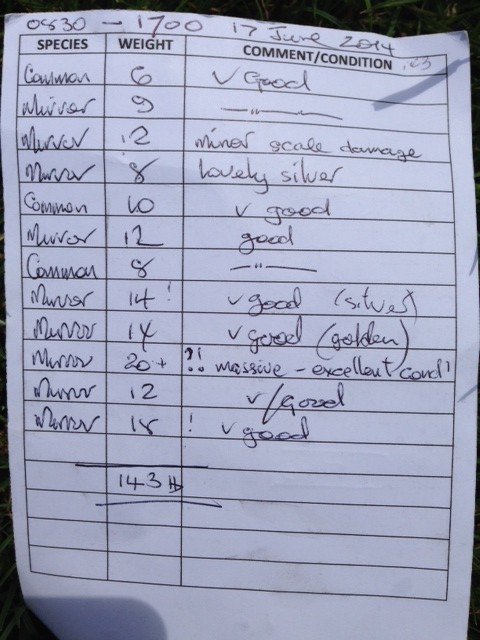 0830 - 1700 17 June 2014
SPECIES WEIGHT COMMENT/CONDITION
Common 6 v Good
Mirror 9 — " —
Mirror 12 minor scale damage
Mirror 8 lovely silver
Common 10 v good
Mirror 12 good
Common 8 — " —
Mirror 14 ! v good (silver)
Mirror 14 v good (golden)
Mirror 20+ ?! massive - excellent cond'
Mirror 12 v/Good
Mirror 18 ! v good
143 lb